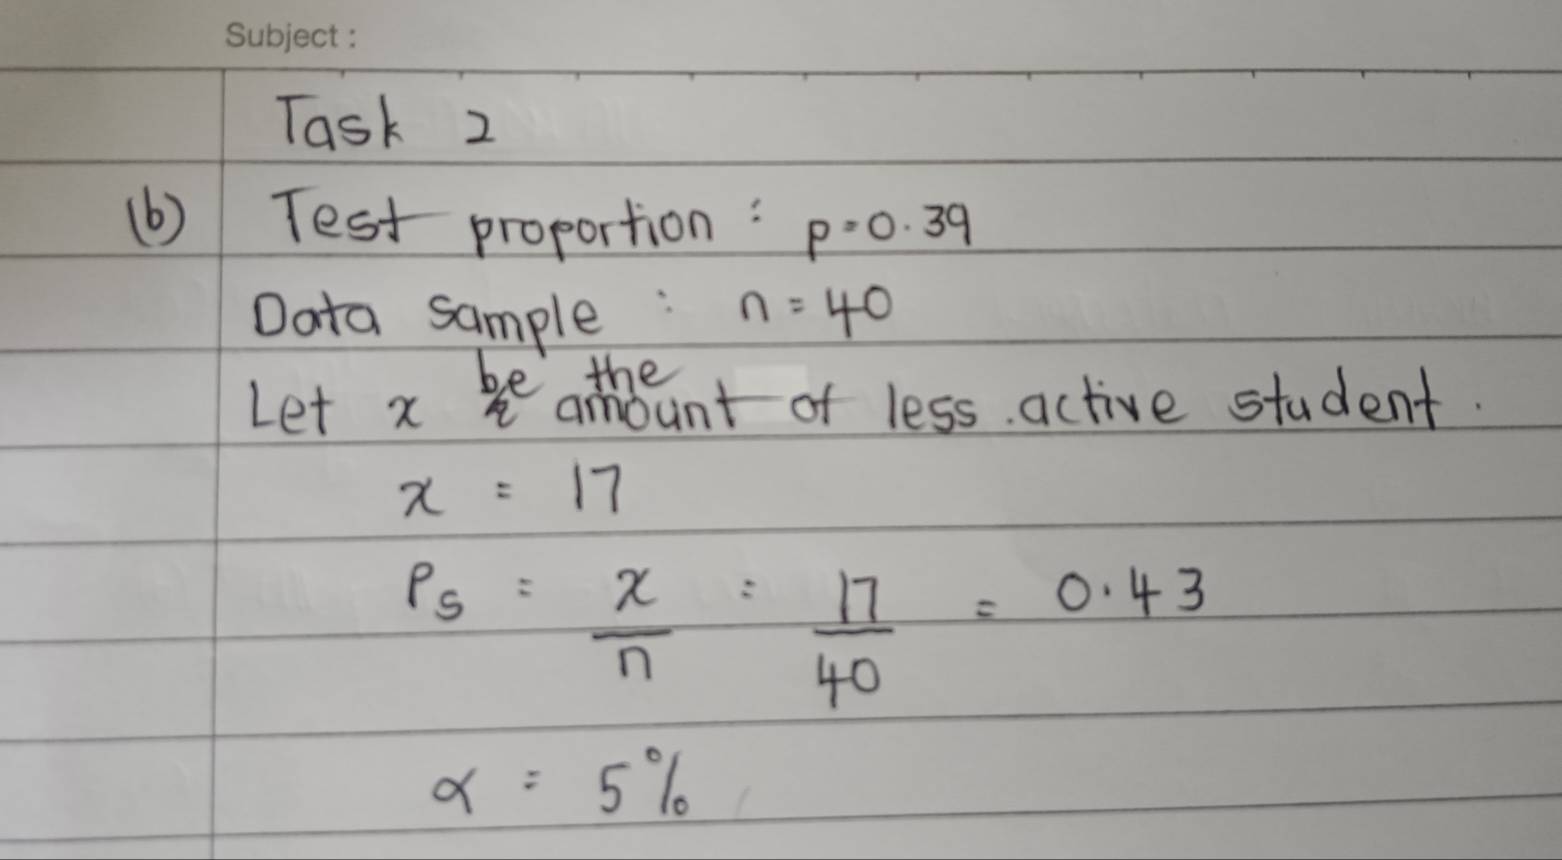 Subject :
Task 2
(b) Test proportion : p = 0.39
Data sample : n = 40
Let x be the amount of less active student.
x = 17
Ps = x/n = 17/40 = 0.43
α = 5%